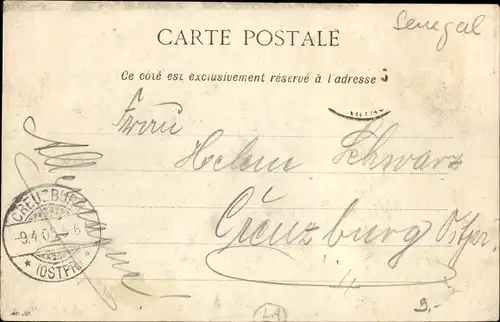 Senegal
CARTE POSTALE
Ce côté est exclusivement réservé à l'adresse
Frau
Helene Schwarz
Creuzburg Ostpr.
CREUZBURG
9.4.05
* (OSTPR) *
9.-